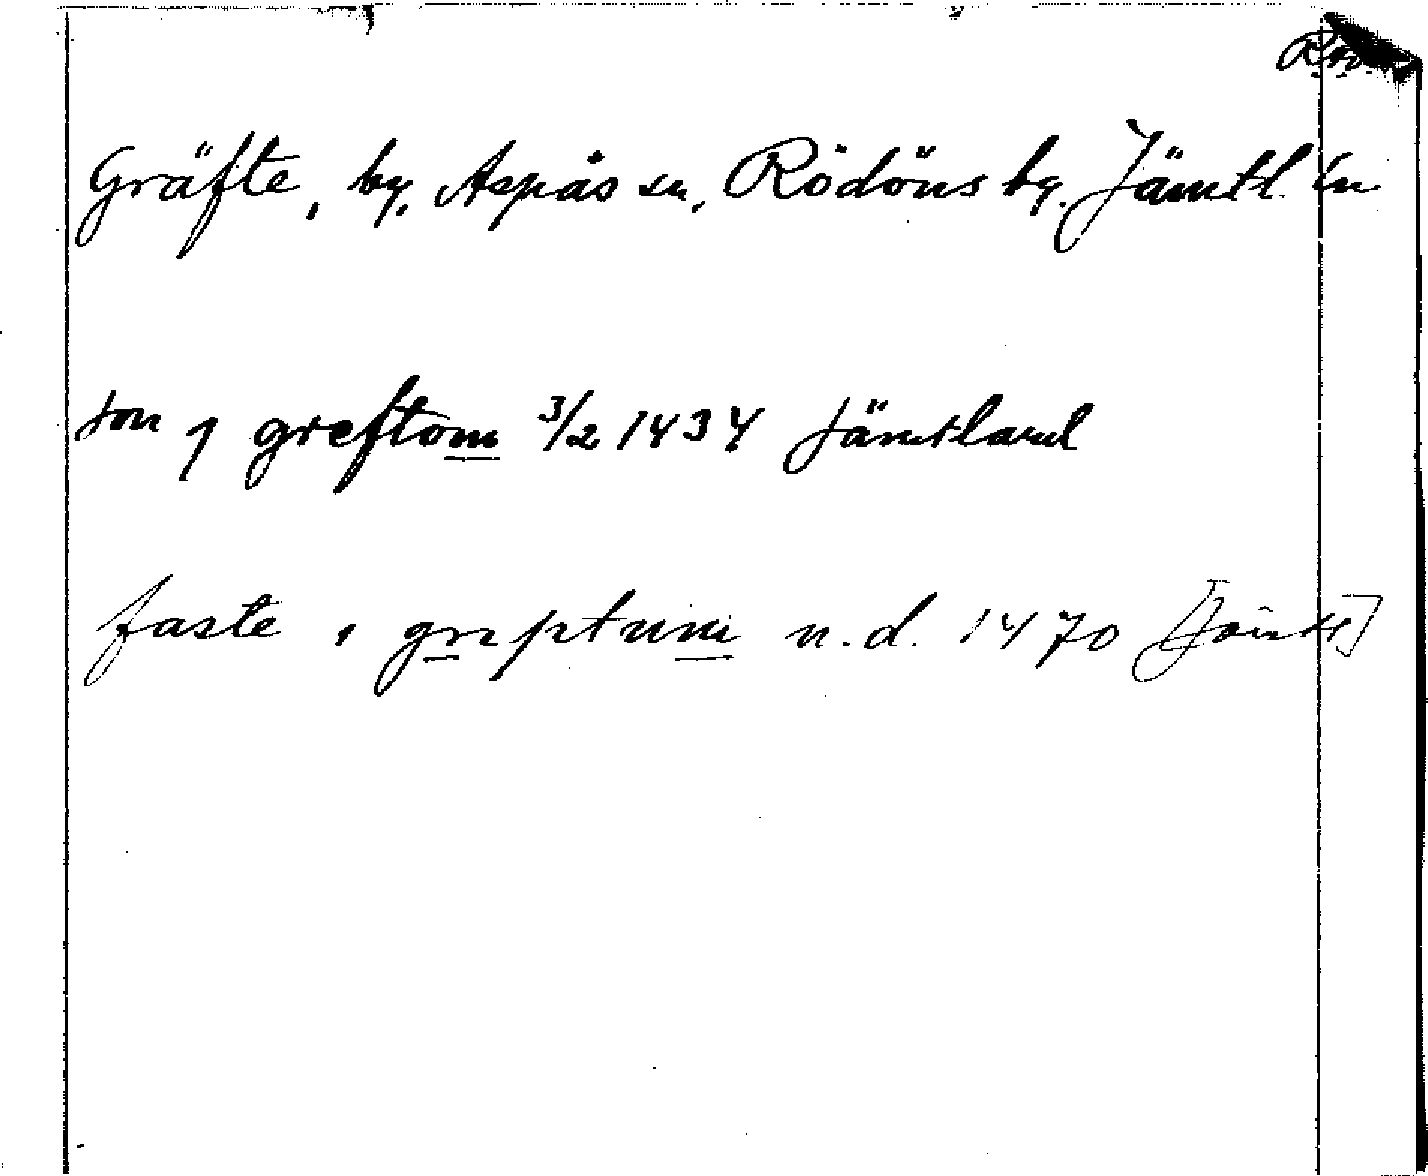 Gräfte, by, Aspås sn, Rödöns hg. Jämtl ln
Jon j greftom 3/2 1434 Jämtland
faste i greptum u.d. 1470 [Jämtl]